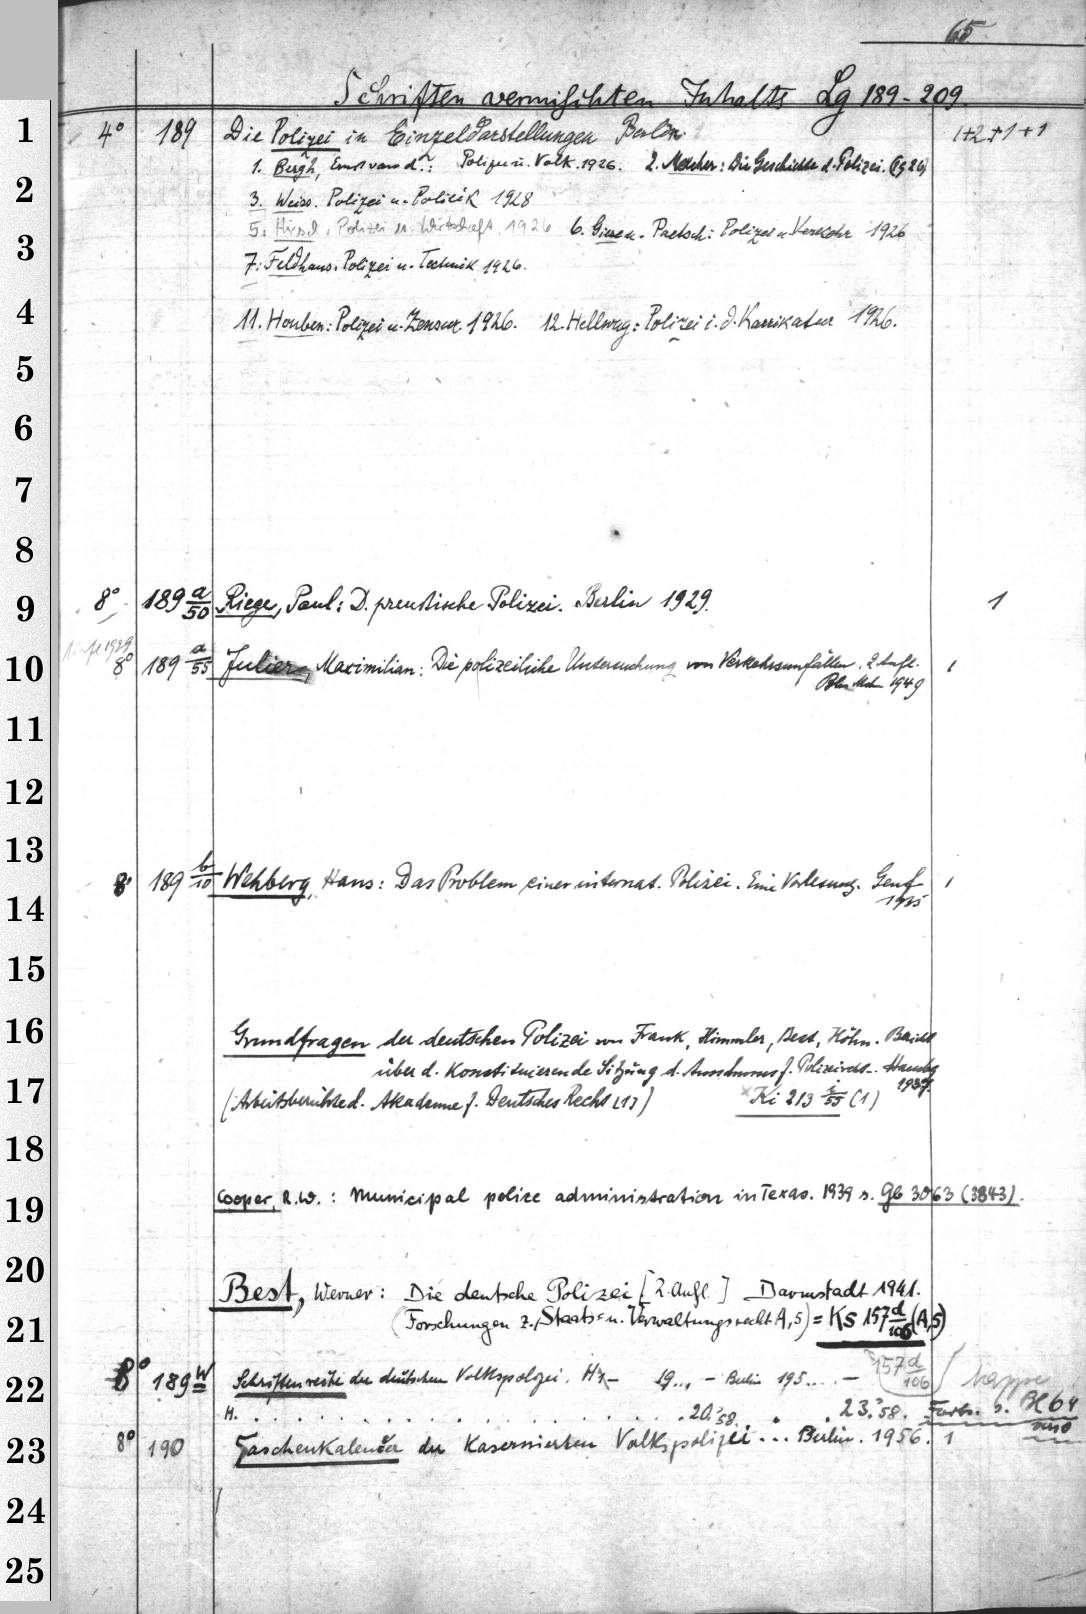 65.
Schriften vermischten Inhalts Lg 189-209.
1
4° 189 Die Polizei in Einzeldarstellungen Berlin 1+2+1+1
1. Bergh, Ernst van d.: Polizei u. Volk. 1926. 2. Melcher: Die Geschichte d. Polizei. (1926)
2
3. Weiss. Polizei u. Politik 1928
5. Hirsch, Polizei u. Wirtschaft. 1926 6. Giese u. Paetsch: Polizei u. Verkehr 1926
3
7. Feldhaus. Polizei u. Technik 1926.
4
11. Houben: Polizei u. Zensur. 1926. 12. Hellwig: Polizei i. d. Karrikatur 1926.
5
6
7
8
9
8° 189 a/50 Riege, Paul: D. preußische Polizei. Berlin 1929. 1
10
8° 189 a/55 Julier, Maximilian: Die polizeiliche Untersuchung von Verkehrsunfällen. 2. Aufl. 1
1949
11
12
13
8° 189 b/10 Wehberg, Hans: Das Problem einer internat. Polizei. Eine Vorlesung. Genf 1
1935
14
15
16
Grundfragen der deutschen Polizei von Frank, Himmler, Best, Höhn. Bericht
über d. Konstituierende Sitzung d. Ausschusses f. Polizeirecht. Hamburg
1937.
17
(Arbeitsberichte d. Akademie f. Deutsches Recht) Ki 213 i/55 (1)
18
19
Cooper, R.W.: Municipal police administration in Texas. 1939 s. Gb 3063 (3843).
20
Best, Werner: Die deutsche Polizei [2. Aufl.] Darmstadt 1941.
21
(Forschungen z. Staats- u. Verwaltungsrecht A, 5) = Ks 157 d/106 (A,5)
157 d/106
22
8° 189 w Schriftenreihe der deutschen Volkspolizei. H. – 19.., – Berlin 195.... – Mappe
H. . . . . . . . . . . . . 20.'58. . . 23.'58. Forts. s. Bl 64
verso
23
8° 190 Taschenkalender der Kasernierten Volkspolizei ... Berlin. 1956. 1
24
25